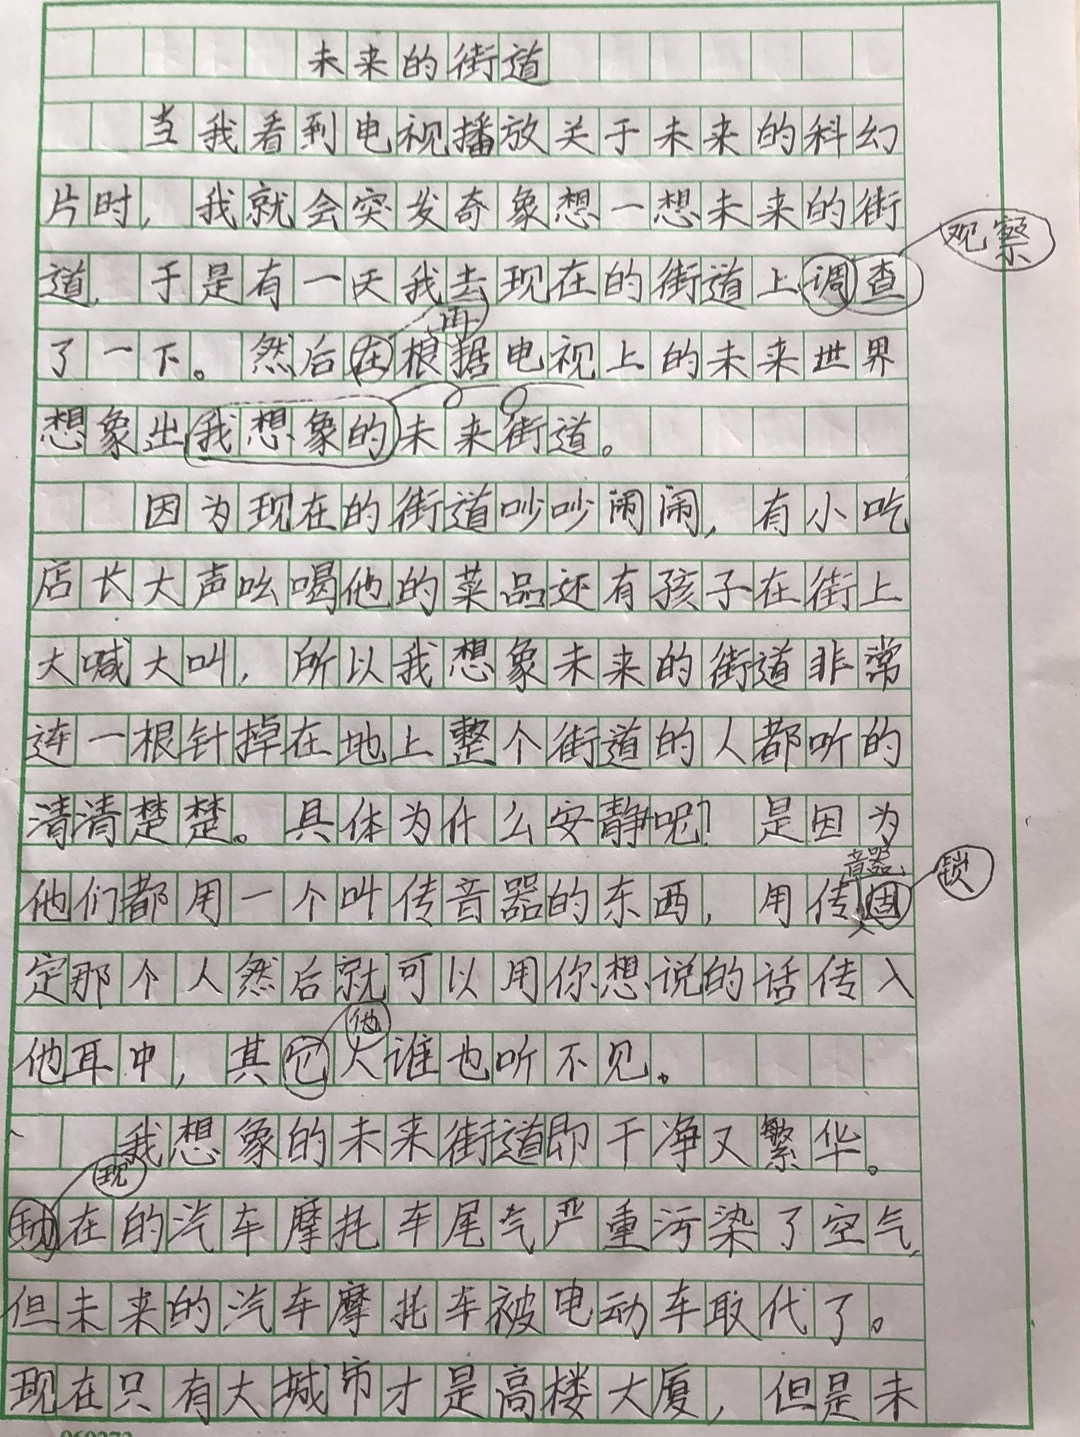 未来的街道
当我看到电视播放关于未来的科幻
片时，我就会突发奇象想一想未来的街
观察
道，于是有一天我去现在的街道上调查
再
了一下。然后在根据电视上的未来世界
想象出我想象的未来街道。
因为现在的街道吵吵闹闹，有小吃
店长大声吆喝他的菜品还有孩子在街上
大喊大叫，所以我想象未来的街道非常
连一根针掉在地上整个街道的人都听的
清清楚楚。具体为什么安静呢？是因为
音器 锁
他们都用一个叫传音器的东西，用传固
定那个人然后就可以用你想说的话传入
他
他耳中，其它人谁也听不见。
我想象的未来街道即干净又繁华。
现
在的汽车摩托车尾气严重污染了空气，
但未来的汽车摩托车被电动车取代了。
现在只有大城市才是高楼大厦，但是未